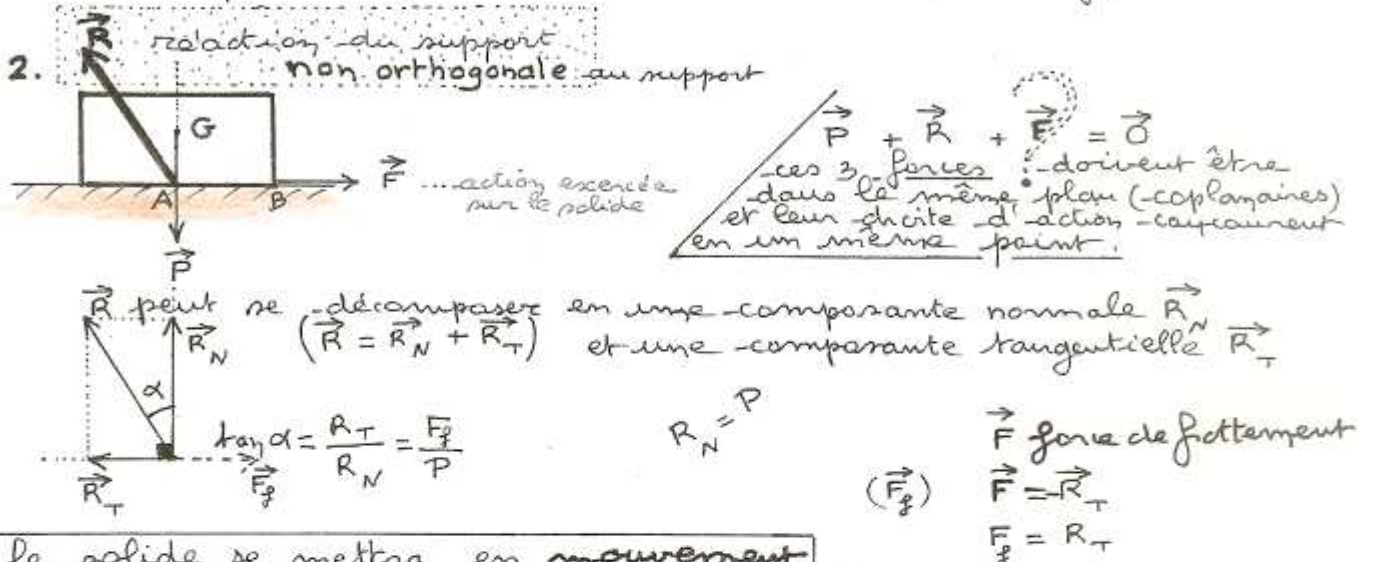 2.
R⃗ réaction du support
non orthogonale au support
G
A B
F⃗ ....action exercée
sur le solide
P⃗
P⃗ + R⃗ + F⃗ = O⃗
?
ces 3 forces doivent être
dans le même plan (coplanaires)
et leur droite d'action concourent
en un même point.
R⃗ peut se décomposer en une composante normale R⃗_N
(R⃗ = R⃗_N + R⃗_T) et une composante tangentielle R⃗_T
R⃗_N
α
tan α = R_T / R_N = F_f / P
R_N = P
R⃗_T
F⃗_f
F⃗ force de frottement
(F⃗_f) F⃗ = -R⃗_T
F_f = R_T
le solide se mettra en mouvement